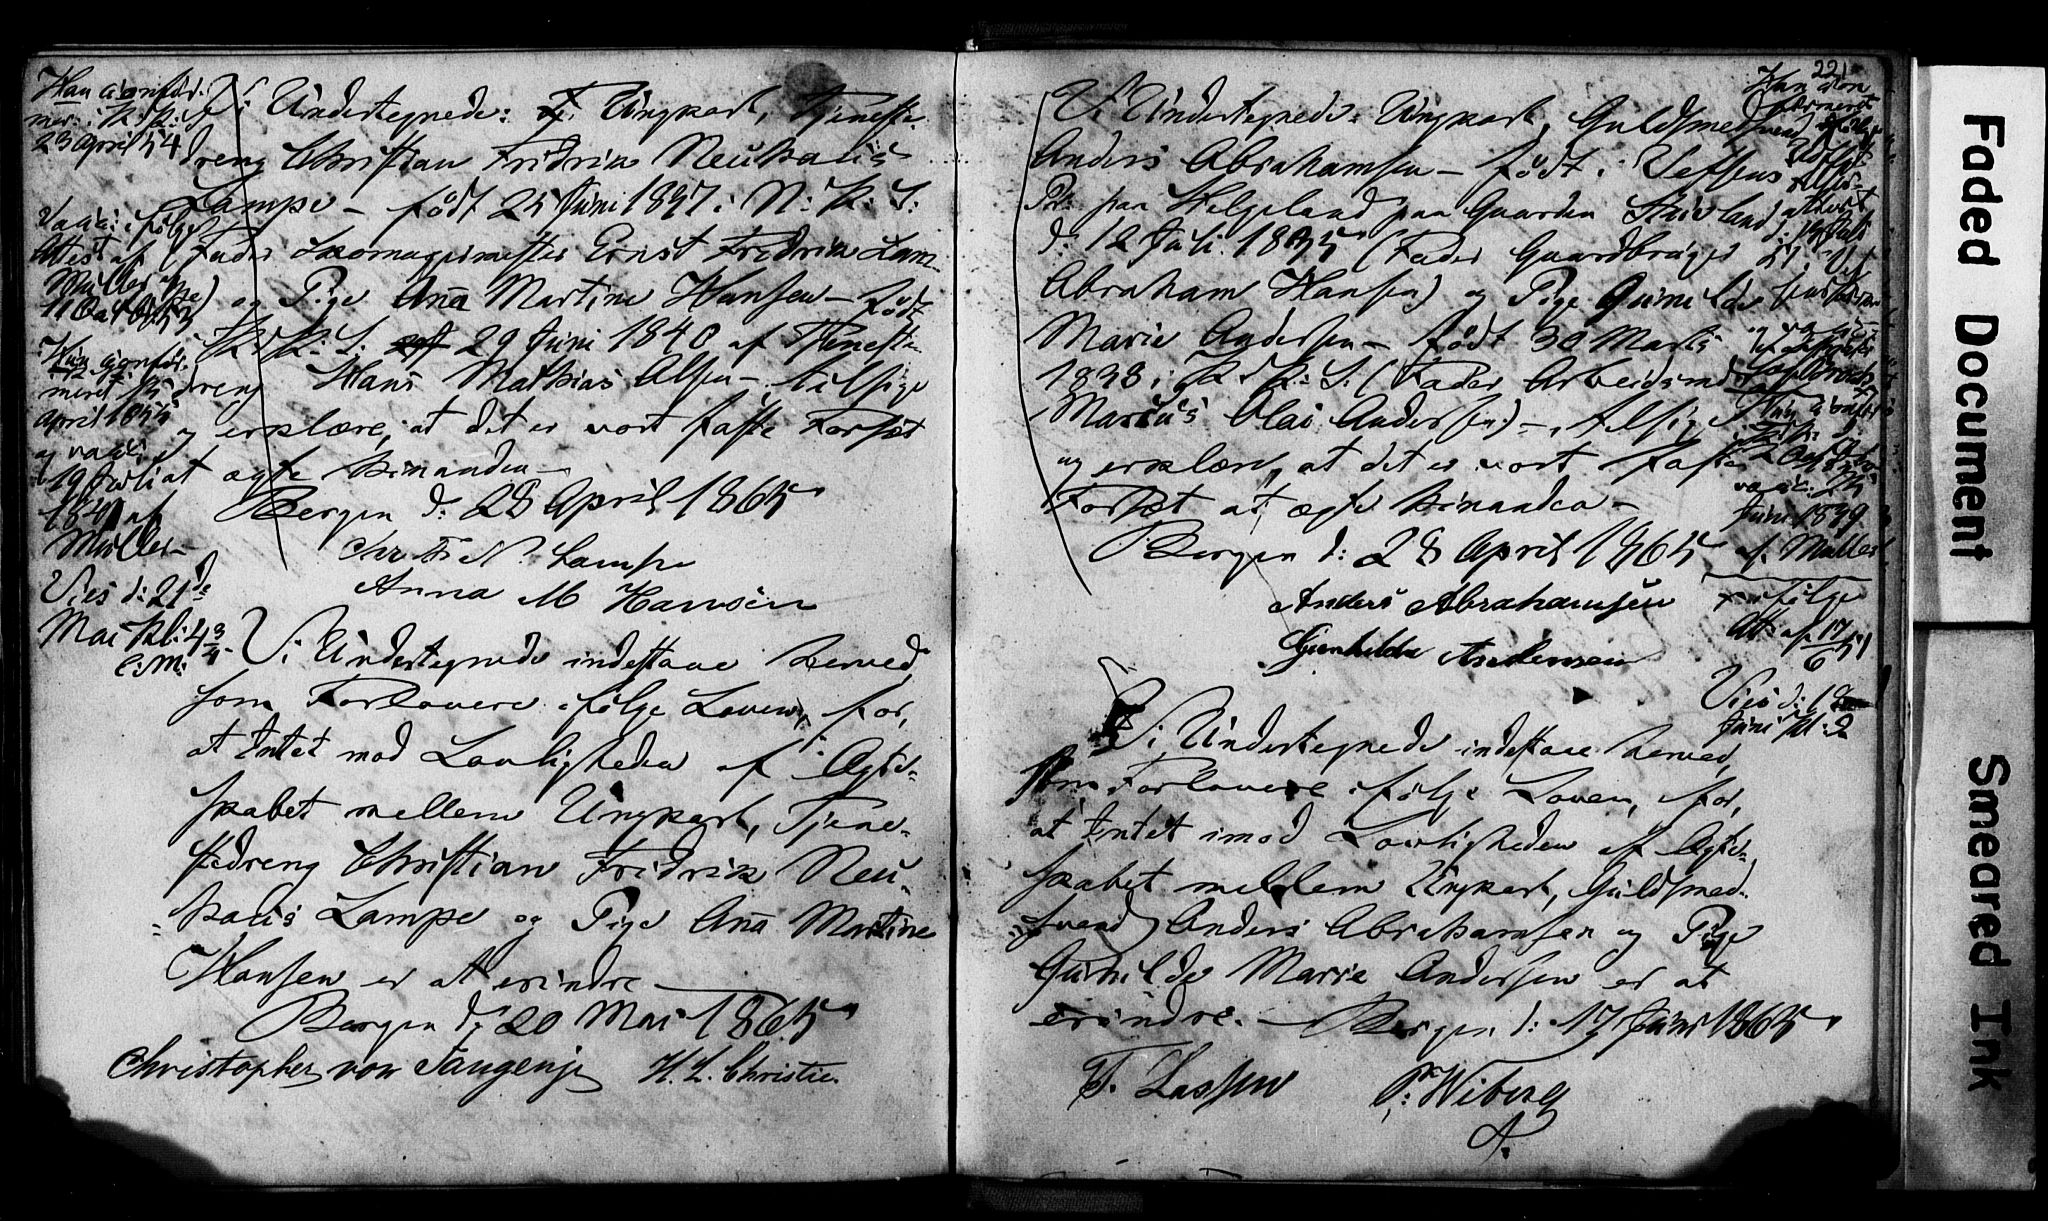 Han confir-
mer: i K: K: d
23 April 54
Vacc: i følge
Attest af
Müller
11 Oct 1853
Hun confir-
meret 15
April 1855
og vacc:
19 Juli
1841 af
Müller
Vies d: 21de
Mai Kl: 4 3/4
E.M:
Vi Undertegnede: Ungkarl, Tjeneste-
dreng Christian Fridrik Neuhaus
Lampe – født 25 Juni 1837 i N: K: S:
(Fader Skomagermester Ernst Fredrik Lam-
pe) og Pige Ana Martine Hansen – født
i K: K: S: 29 Juni 1840 af Tjeneste-
dreng Hans Mathias Olsen – tilsige
og erklære, at det er vort faste Forsæt
at ægte hinanden –
Bergen d: 28 April 1865
Chr Fr N. Lampe
Anna M Hansen
Vi Undertegnede indestaae herved
som Forlovere i følge Loven, for,
at Intet mod Lovligheden af Ægte-
skabet mellem Ungkarl, Tjene-
stedreng Christian Fridrik Neu-
haus Lampe og Pige Ana Martine
Hansen er at erindre –
Bergen d: 20 Mai 1865
Christopher von Tangen jr H. L. Christie.
221
Vi Undertegnede: Ungkarl, Guldsmedsvend
Anders Abrahamsen – født i Vefsens
Pr: paa Helgeland paa Gaarden
d: 12 Juli 1835 (Fader Gaardbruger
Abraham Hansen) og Pige Gunilde
Marie Andersen – født 30 Marts
1838 i K: K: S: (Fader Arbeidsmd
Marcus Olai Andersen) – tilsige
og erklære, at det er vort faste
Forsæt at ægte hinanden –
Bergen d: 28 April 1865
Anders Abrahamsen
Gunhilde Andersen
Han con
firmeret
Juni 1839
af Müller
i følge
Att: af 17/6 51
Vies d: 18
Juni Kl: 2
Vi Undertegnede indestaae herved,
som Forlovere i følge Loven, for,
at Intet imod Lovligheden af Ægte-
skabet mellem Ungkarl, Guldsmed-
svend Anders Abrahamsen og Pige
Gunilde Marie Andersen er at
erindre. – Bergen d: 17 Juni 1865
T. Lassen P: Wiberg
Faded Document
Smeared Ink